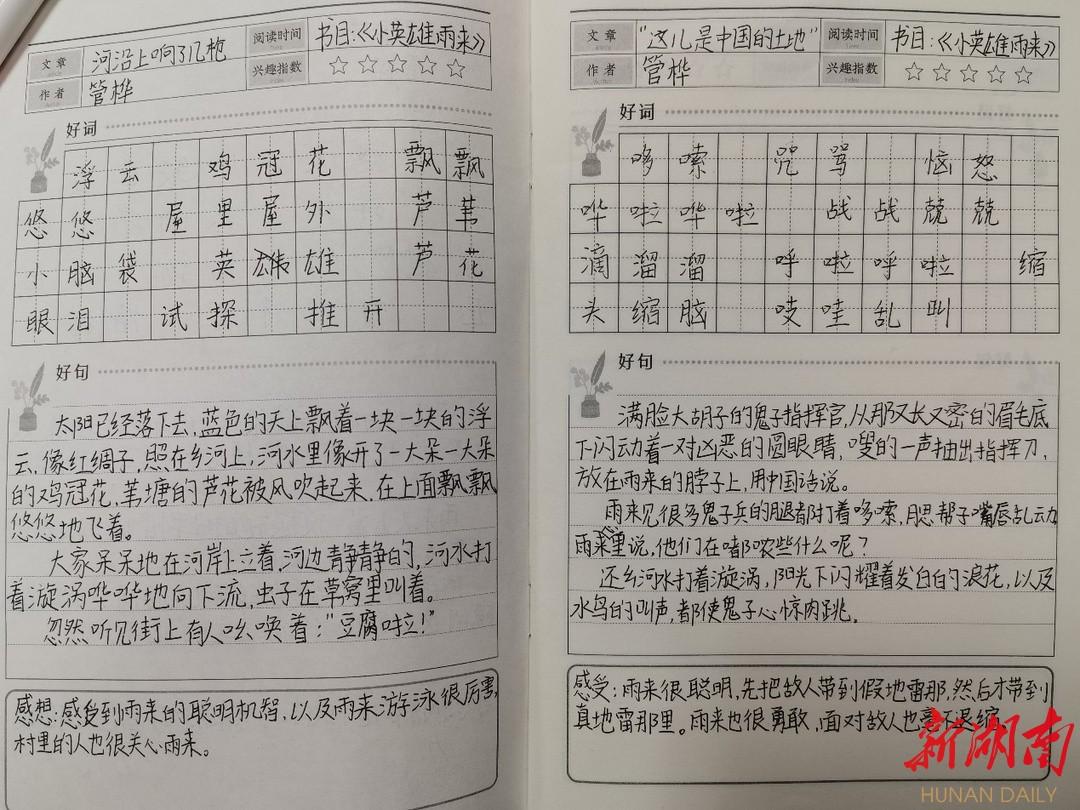 文章
河沿上响了几枪
阅读时间
书目:《小英雄雨来》
作者
管桦
兴趣指数
☆☆☆☆☆
好词
浮云 鸡冠花 飘飘
悠悠 屋里屋外 芦苇
小脑袋 英雄 芦花
眼泪 试探 推开
好句
太阳已经落下去,蓝色的天上飘着一块一块的浮
云,像红绸子,照在还乡河上,河水里像开了一大朵一大朵
的鸡冠花,苇塘的芦花被风吹起来,在上面飘飘
悠悠地飞着。
大家呆呆地在河岸上立着,河边静静的,河水打
着漩涡哗哗地向下流,虫子在草窝里叫着。
忽然听见街上有人吆唤着:“豆腐啦!”
感想:感受到雨来的聪明机智,以及雨来游泳很厉害,
村里的人也很关心雨来。
文章
“这儿是中国的土地”
阅读时间
书目:《小英雄雨来》
作者
管桦
兴趣指数
☆☆☆☆☆
好词
哆嗦 咒骂 恼怒
哗啦哗啦 战战兢兢
滴溜溜 呼啦呼啦 缩
头缩脑 吱哇乱叫
好句
满脸大胡子的鬼子指挥官,从那又长又密的眉毛底
下闪动着一对凶恶的圆眼睛,嗖的一声抽出指挥刀,
放在雨来的脖子上,用中国话说。
雨来见很多鬼子兵的腿都打着哆嗦,腮帮子嘴唇乱动
雨来心里说,他们在嘟哝些什么呢?
还乡河水打着漩涡,阳光下闪耀着发白的浪花,以及
水鸟的叫声,都使鬼子心惊肉跳。
感受:雨来很聪明,先把敌人带到假地雷那,然后才带到
真地雷那里。雨来也很勇敢,面对敌人也毫不退缩。
新湖南
HUNAN DAILY